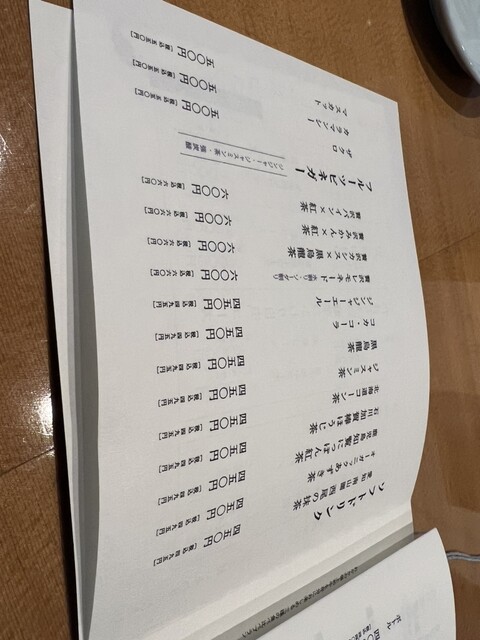 ボトル
ソフトドリンク
愛知 南山園 西尾の抹茶 四五〇円 [税込 四九五円]
オーガニックあずき茶 四五〇円 [税込 四九五円]
鹿児島知覧にっぽん紅茶 四五〇円 [税込 四九五円]
石川加賀棒ほうじ茶 四五〇円 [税込 四九五円]
北海道コーン茶 四五〇円 [税込 四九五円]
ジャスミン茶 四五〇円 [税込 四九五円]
黒烏龍茶 四五〇円 [税込 四九五円]
コカ・コーラ 四五〇円 [税込 四九五円]
ジンジャーエール 四五〇円 [税込 四九五円]
贅沢レモネード 水割り・ソーダ割り 六〇〇円 [税込 六六〇円]
贅沢カシス×黒烏龍茶 六〇〇円 [税込 六六〇円]
贅沢みかん×紅茶 六〇〇円 [税込 六六〇円]
贅沢パイン×紅茶 六〇〇円 [税込 六六〇円]
フルーツビネガー
ジンジャー・ジャスミン茶・強炭酸
ザクロ 五〇〇円 [税込 五五〇円]
カラマンシー 五〇〇円 [税込 五五〇円]
マスカット 五〇〇円 [税込 五五〇円]